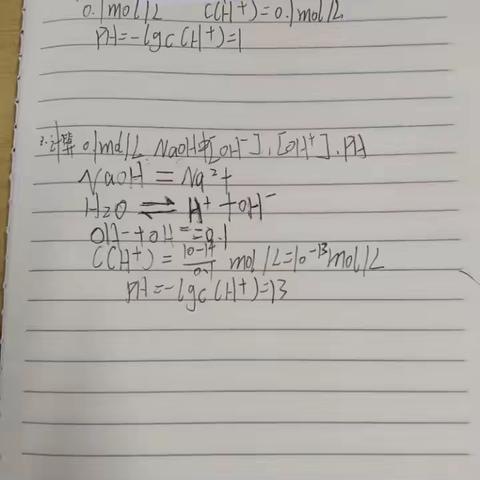 0.1mol/L C(H⁺)=0.1mol/L
PH=-lgc(H⁺)=1
2.计算 0.1mol/L NaOH中[OH⁻],[OH⁺].PH
NaOH=Na²⁺
H₂O⇌H⁺+OH⁻
OH⁻+OH⁻=0.1
C(H⁺)=10-14/0.1 mol/L=10⁻¹³mol/L
PH=-lgc(H⁺)=13